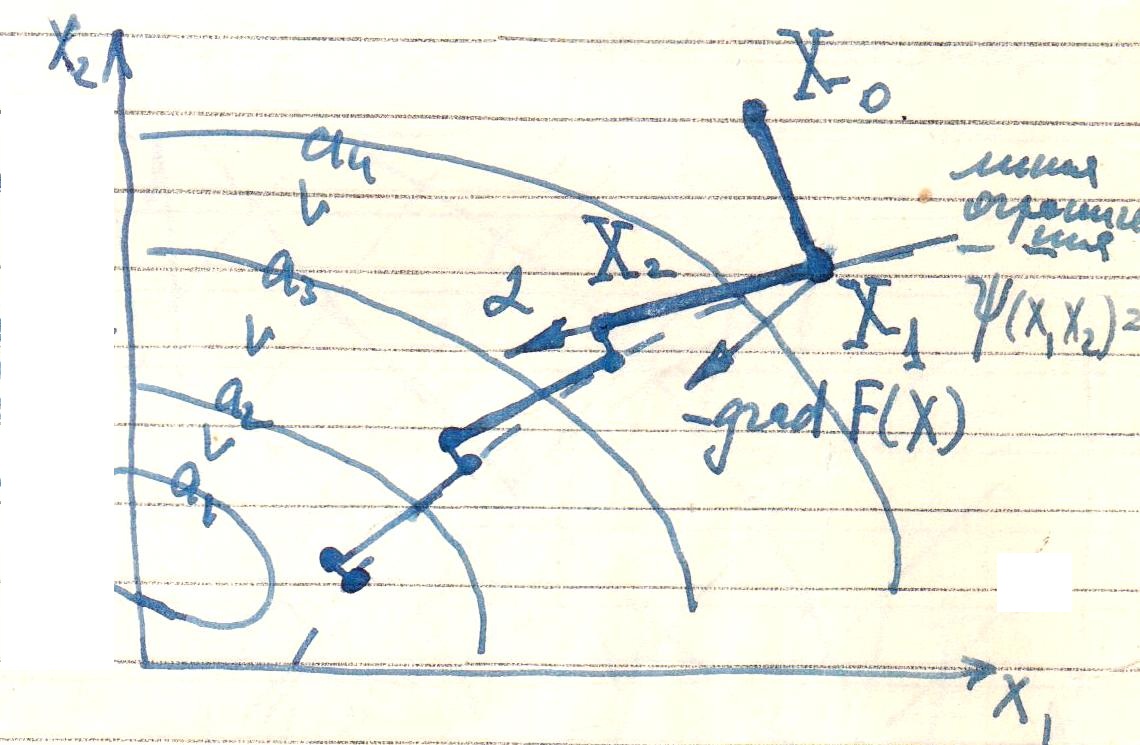 X₂
X₀.
a₄
V
линия
ограниче
ния
X₂
a₃
V
L
X₁
Ψ(X₁X₂)=
-grad F(X)
a₂
V
a₁
X₁